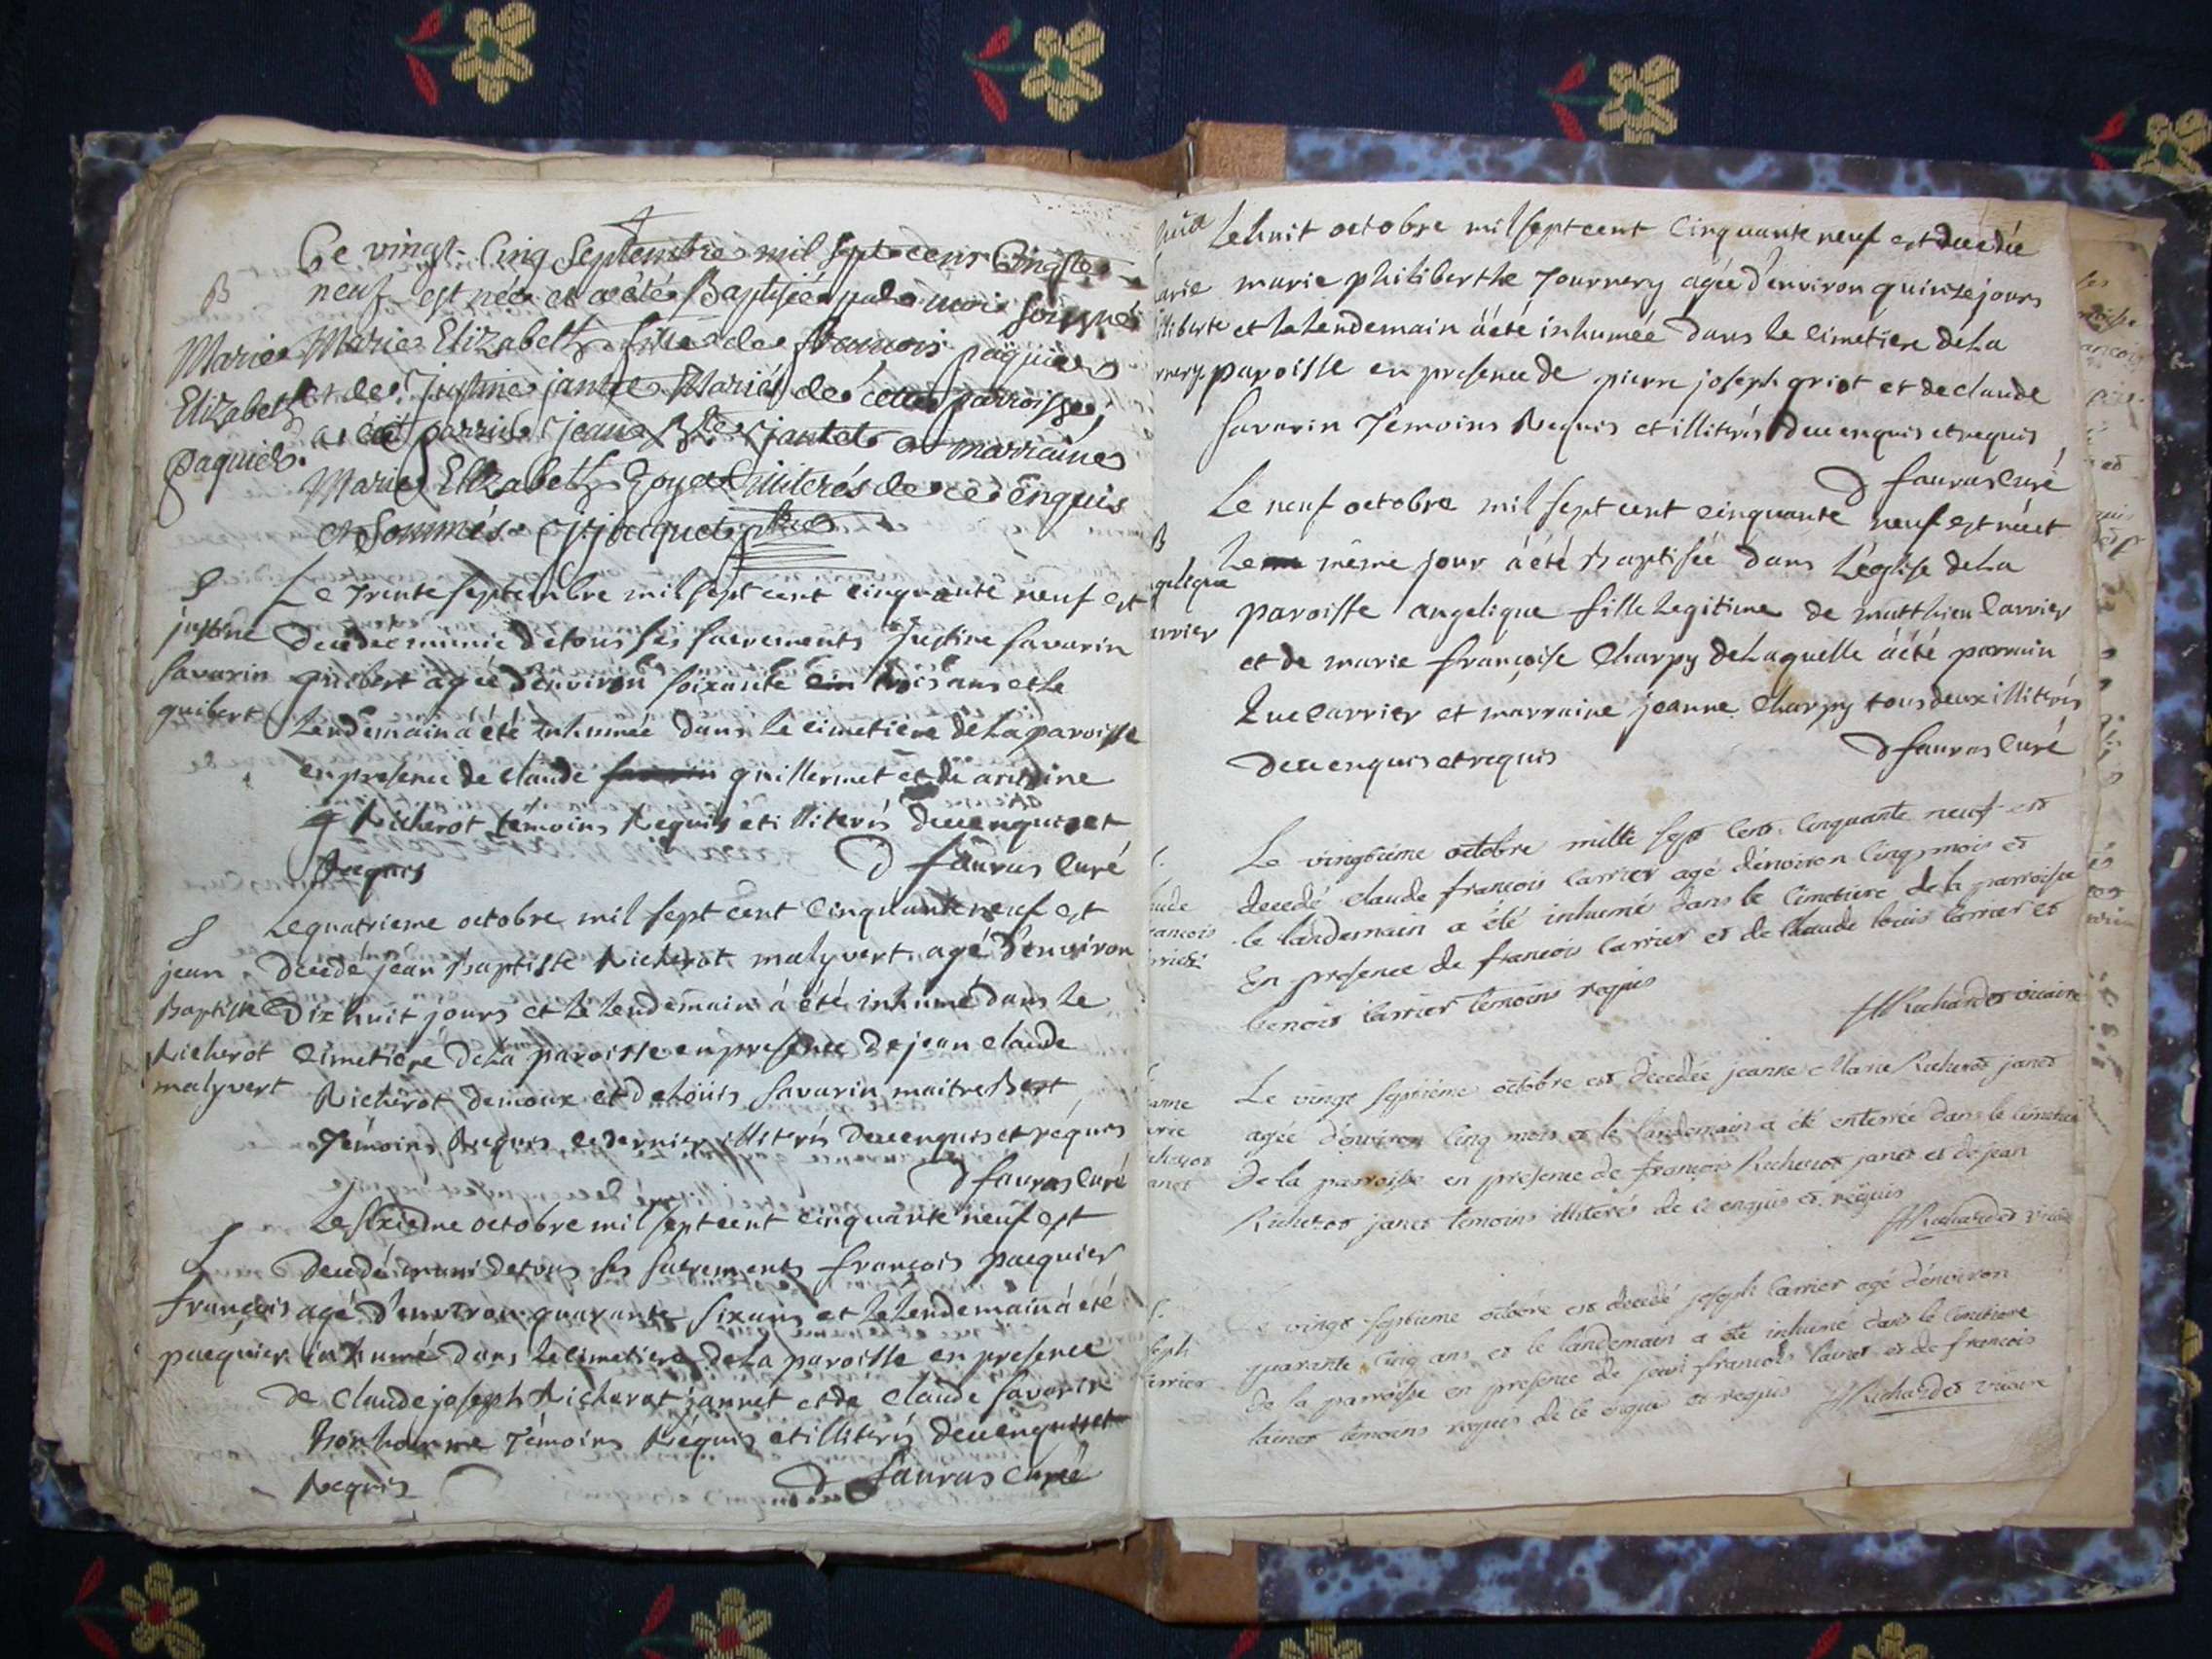 B
Marie
Elizabeth
paquier.
Ce vingt-cinq Septembre mil sept cens Cinqte
neuf est née et a été Baptisée par moi soussigné
Marie Elizabeth fille de françois paquier
et de Justine jantet Mariés de cette parroisse,
a été parrain jean Bte jantet et marraine
Marie Elizabeth illiterés de ce enquis
et Sommés. J. jacquet
S
justine
Savarin
guibert
Le Trente septembre mil sept cent cinquante neuf est
decedée munie de tous ses sacrements Justine Savarin
guibert agée d'environ soixante trois ans et le
lendemain à été inhumée dans le cimetiere de la paroisse
en presence de claude guillermet et de antoine
Richerot témoins Requis et illiterés de ce enquis et
Requis D fauras Curé
S
jean
Baptiste
Richerot
malyvert
Le quatrieme octobre mil sept cent Cinquante neuf est
decedé jean Baptiste Richerot malyvert agé d'environ
Dix huit jours et le lendemain à été inhumé dans le
cimetiere de la paroisse en presence de jean claude
Richerot demoux et de Louis Savarin maitre Bert
Témoins Requis le dernier illiterés de ce enquis et requis
D fauras Curé
S
françois
pacquier
Le sixieme octobre mil sept cent cinquante neuf est
decedé muni de tous ses sacrements françois pacquier
agé d'environ quarante six ans et le lendemain à été
inhumé dans le cimetiere de la paroisse en presence
de Claude joseph Richerot jannet et de claude Savarin
bonhomme Témoins Requis et illiterés de ce enquis et
Requis D fauras Curé
arie
iliberte
rnery
Le huit octobre mil sept cent Cinquante neuf est decedée
marie philiberthe Journery agée d'environ quinze jours
et le lendemain à été inhumée dans le cimetiere de La
paroisse en presence de pierre joseph griot et de claude
Savarin Témoins Requis et illiterés de ce enquis et requis
D fauras Curé
B
gelique
arrier
Le neuf octobre mil sept cent cinquante neuf est née et
le même jour à été Baptisée dans L'église de La
paroisse angelique fille Legitime de matthieu Carrier
et de marie françoise Charpy de Laquelle à été parrain
Luc Carrier et marraine jeanne Charpy tous deux illiterés
de ce enquis et requis D fauras Curé
S.
aude
rancois
rrier
Le vingtieme octobre mille sept cent cinquante neuf est
decedé claude francois Carrier agé d'environ Cinq mois et
le landemain a été inhumé dans le Cimetiere de la parroisse
En presence de francois Carrier et de Claude louis Carrier et
benoit Carrier temoins requis
Richardet vicaire
anne
cherot
anet
Le vingt septieme octobre est decedée jeanne Marie Richerot janet
agée d'environ Cinq mois et le landemain a été enterrée dans le Cimetiere
De la parroisse en presence de françois Richerot janet et de jean
Richerot janet temoins illiterés de ce enquis et requis
Richardet vicaire
S.
seph
arrier
Le vingt septieme octobre est decedé joseph Carrier agé d'environ
quarante cinq ans et le landemain a été inhumé dans le Cimetiere
de la parroisse en presence de jean francois et de francois
temoins requis de ce enquis et requis Richardet vicaire